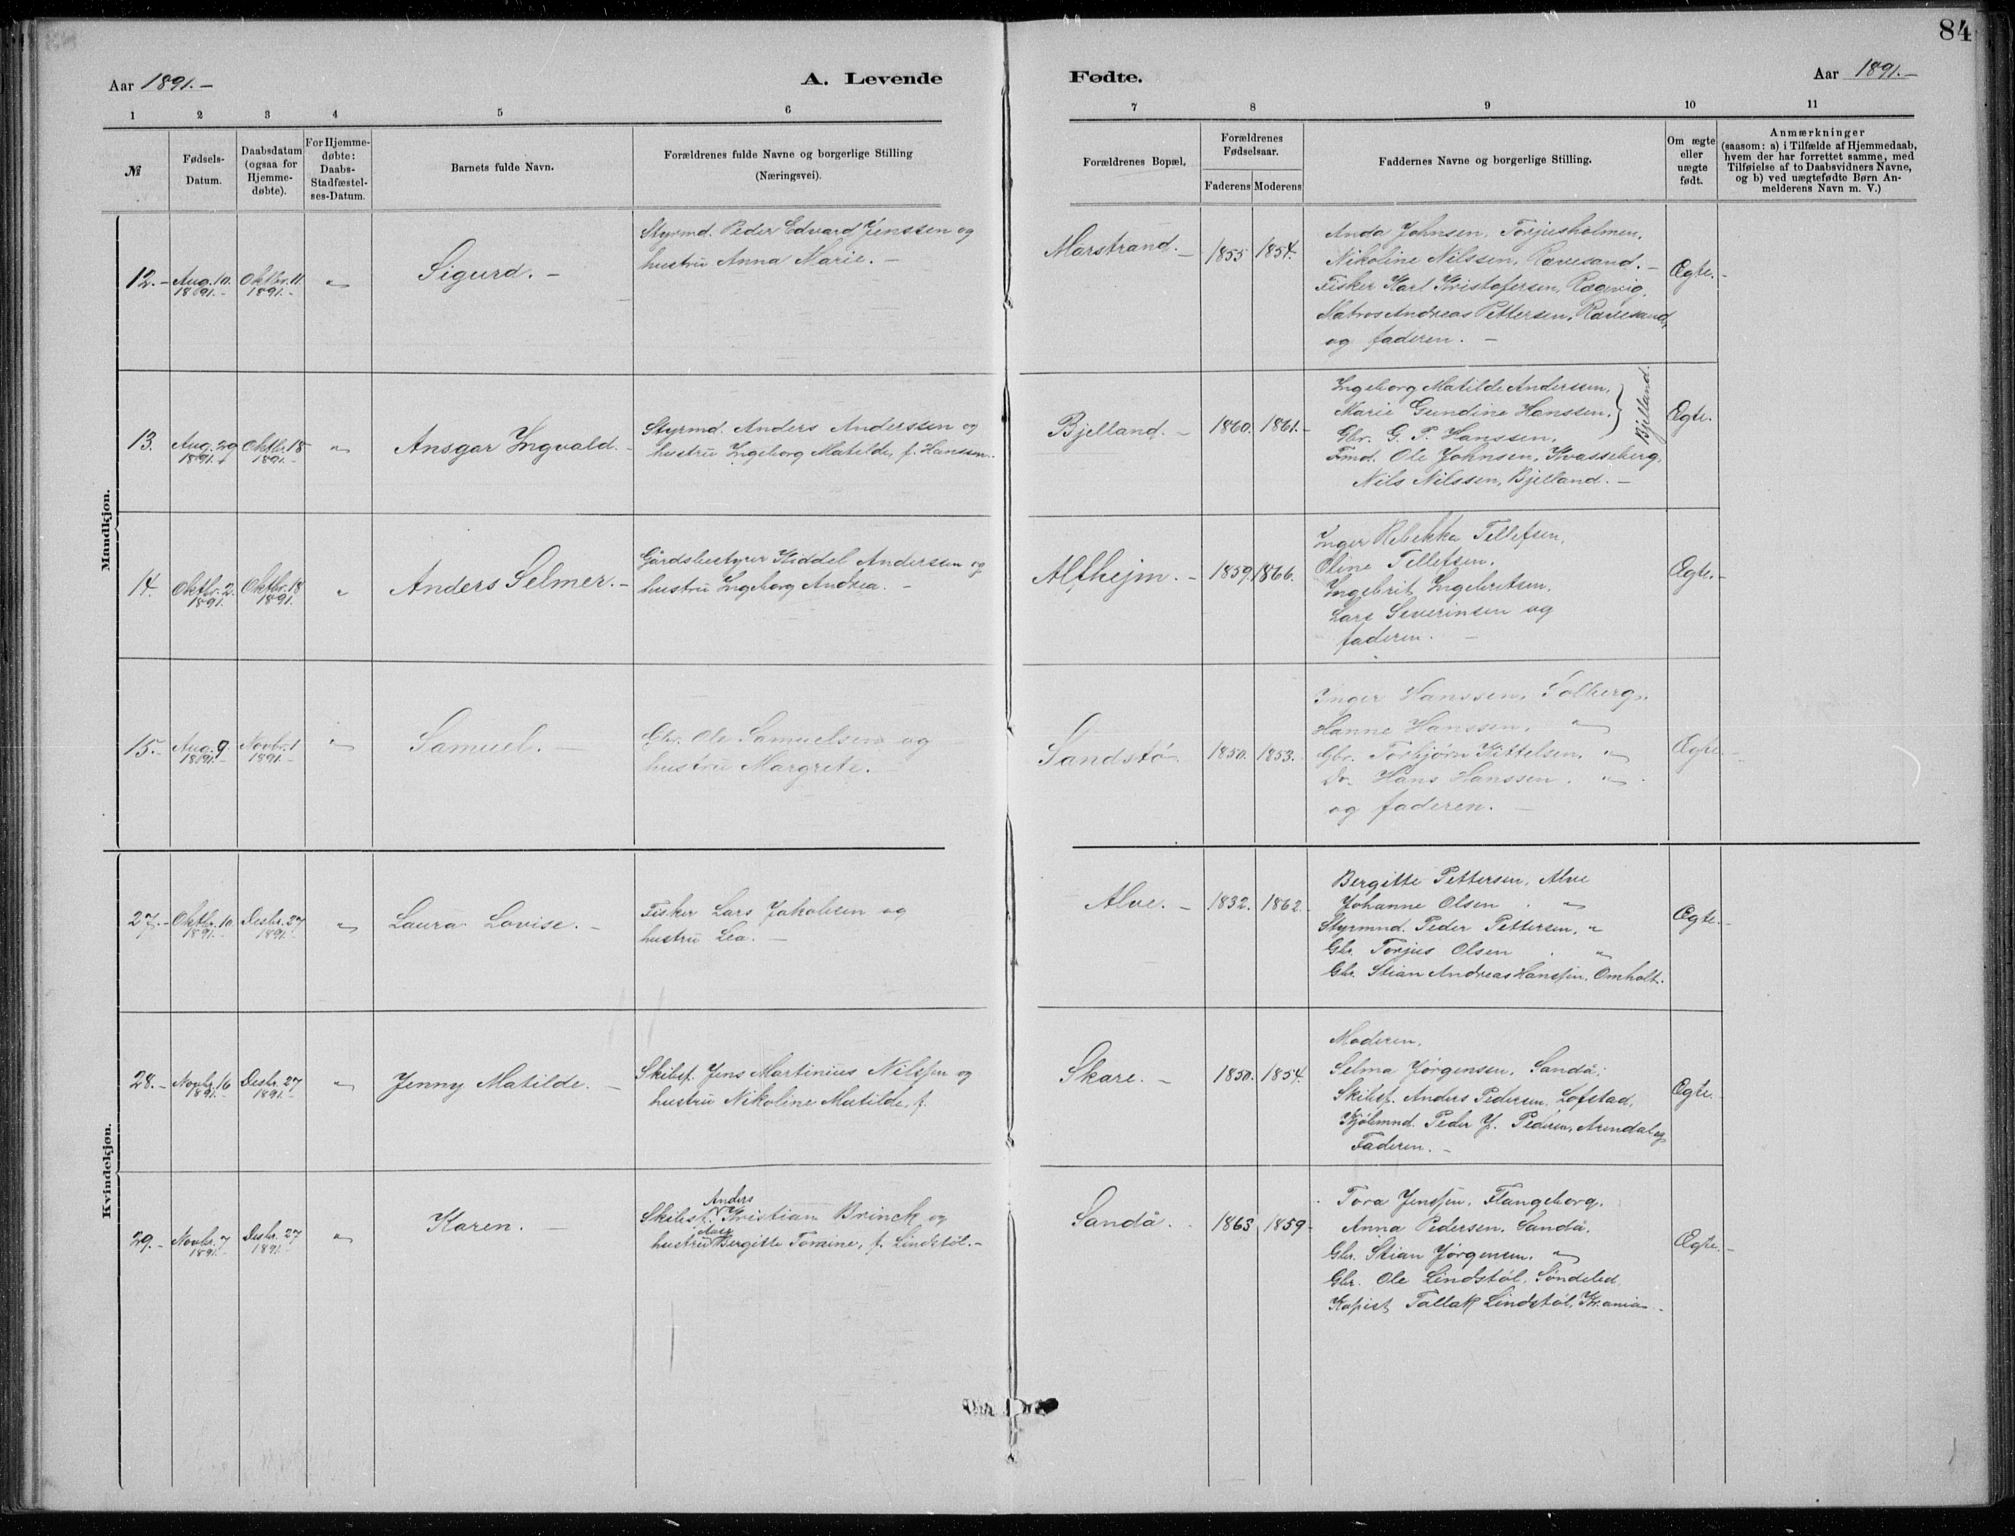 84
Aar 1891.-
A. Levende
Fødte.
Aar 1891.-
1 2 3 4 5 6 7 8 9 10 11
№
Fødsels-
Datum.
Daabsdatum
(ogsaa for
Hjemme-
døbte).
For Hjemme-
døbte:
Daabs-
Stadfæstel-
ses-Datum.
Barnets fulde Navn.
Forældrenes fulde Navne og borgerlige Stilling
(Næringsvei).
Forældrenes Bopæl.
Forældrenes
Fødselsaar.
Faderens Moderens
Faddernes Navne og borgerlige Stilling.
Om ægte
eller
uægte
født.
Anmærkninger
(saasom: a) i Tilfælde af Hjemmedaab,
hvem der har forrettet samme, med
Tilføielse af to Daabsvidners Navne,
og b) ved uægtefødte Børn An-
melderens Navn m. V.)
Mandkjøn.
12.- Aug. 10. 1891.- Oktbr. 11 1891.- " Sigurd. -
Styrmd. Peder Edvard Jenssen og
hustru Anna Marie. -
Marstrand. - 1855 1854.
Anda Johnsen, Torjusholmen,
Nikoline Nilssen, Rævesand. -
Fisker Karl Kristofersen, Rægevig,
Matros Andreas Pettersen, Rævesand,
og faderen. -
Ægte. -
13. Aug. 29 1891. Oktbr. 18 1891. " Ansgar Ingvald. -
Styrmd. Anders Anderssen og
hustru Ingeborg Matilde, f. Hanssen.
Bjelland. - 1860. 1861. -
Ingeborg Matilde Andersen,
Marie Gundine Hanssen,
Gbr. G. P. Hanssen,
} Bjelland.
Fmd. Ole Johnsen, Kvasseberg,
Nils Nilssen, Bjelland. -
Ægte.
14. Oktbr. 2. 1891. Oktbr. 18 1891. " Anders Selmer. -
Gårdsbestyrer Kiddel Andersen og
hustru Ingeborg Andrea. -
Alfhejm. - 1859. 1866.
Inger Rebekka Tellefsen,
Oline Tellefsen,
Ingebrit Ingebretsen,
Lars Severinsen og
faderen. -
Ægte. -
15.- Aug. 9. 1891. Novbr. 1 1891. " Samuel. -
Gbr. Ole Samuelsen og
hustru Margrete. -
Sandstø 1850. 1853.
Inger Hanssen, Solberg,
Hanne Hanssen, "
Gbr. Torbjørn Kittelsen, "
Do. Hans Hanssen, "
og faderen. -
Ægte. -
Kvindekjøn.
27.- Oktbr. 10 1891. Desbr. 27 1891. " Laura Lovise. -
Fisker Lars Jakobsen og
hustru Lea. -
Alve. - 1832. 1862.
Bergitte Pettersen, Alve
Johanne Olsen . "
Styrmnd. Peder Pettersen, "
Gbr. Torjus Olsen . "
Gbr. Stian Andreas Hanssen, Omholt.
Ægte. -
28.- Novbr. 16 1891. Desbr. 27 1891. " Jenny Matilde. -
Skibsf. Jens Martinius Nilssen og
hustru Nikoline Matilde, f.
Skare. - 1850. 1854.
Moderen,
Selma Jørgensen, Sandå,
Skibsf. Anders Pedersen, Løfstad,
Kjøbmnd. Peder J. Pedersen, Arendal og
Faderen. -
Ægte. -
29.- Novbr. 7 1891. Desbr. 27 1891. " Karen. -
Anders
Skibsf. Kristian Brinck og
hustru Bergitte Tomine, f. Lindstøl. -
Sandå. 1863 1859 -
Tora Jenssen, Flangeborg,
Anna Pedersen, Sandå,
Gbr. Stian Jørgensen, "
Gbr. Ole Lindstøl, Søndeled,
Kopist Tallak Lindstøl, Kr.ania.
Ægte. -